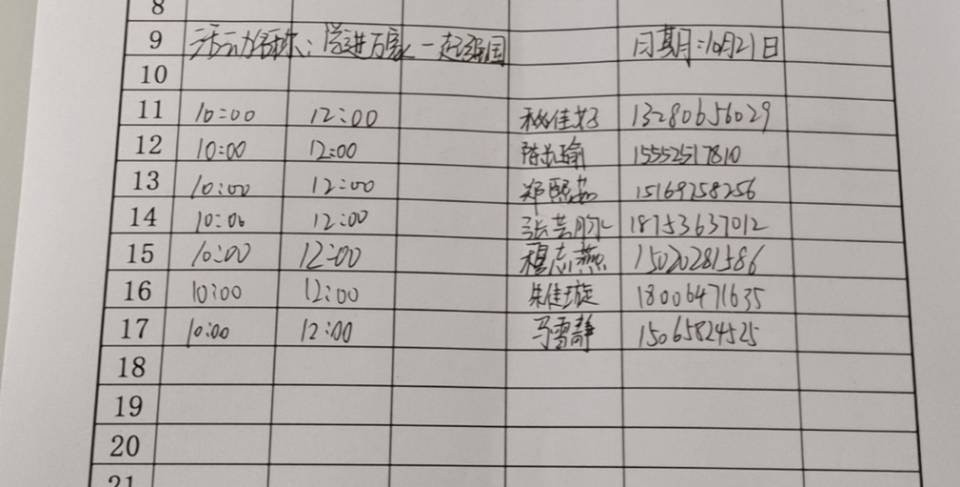 8
9 活动名称：党进万家 一起强国 日期：10月21日
10
11 10:00 12:00 佳好 13280656029
12 10:00 12:00 陈瑜 15552517810
13 10:00 12:00 郑熙 15169258256
14 10:00 12:00 张芸 18753637012
15 10:00 12:00 穆志燕 15020281586
16 10:00 12:00 朱佳璇 18006471635
17 10:00 12:00 马雪静 15065824525
18
19
20
21